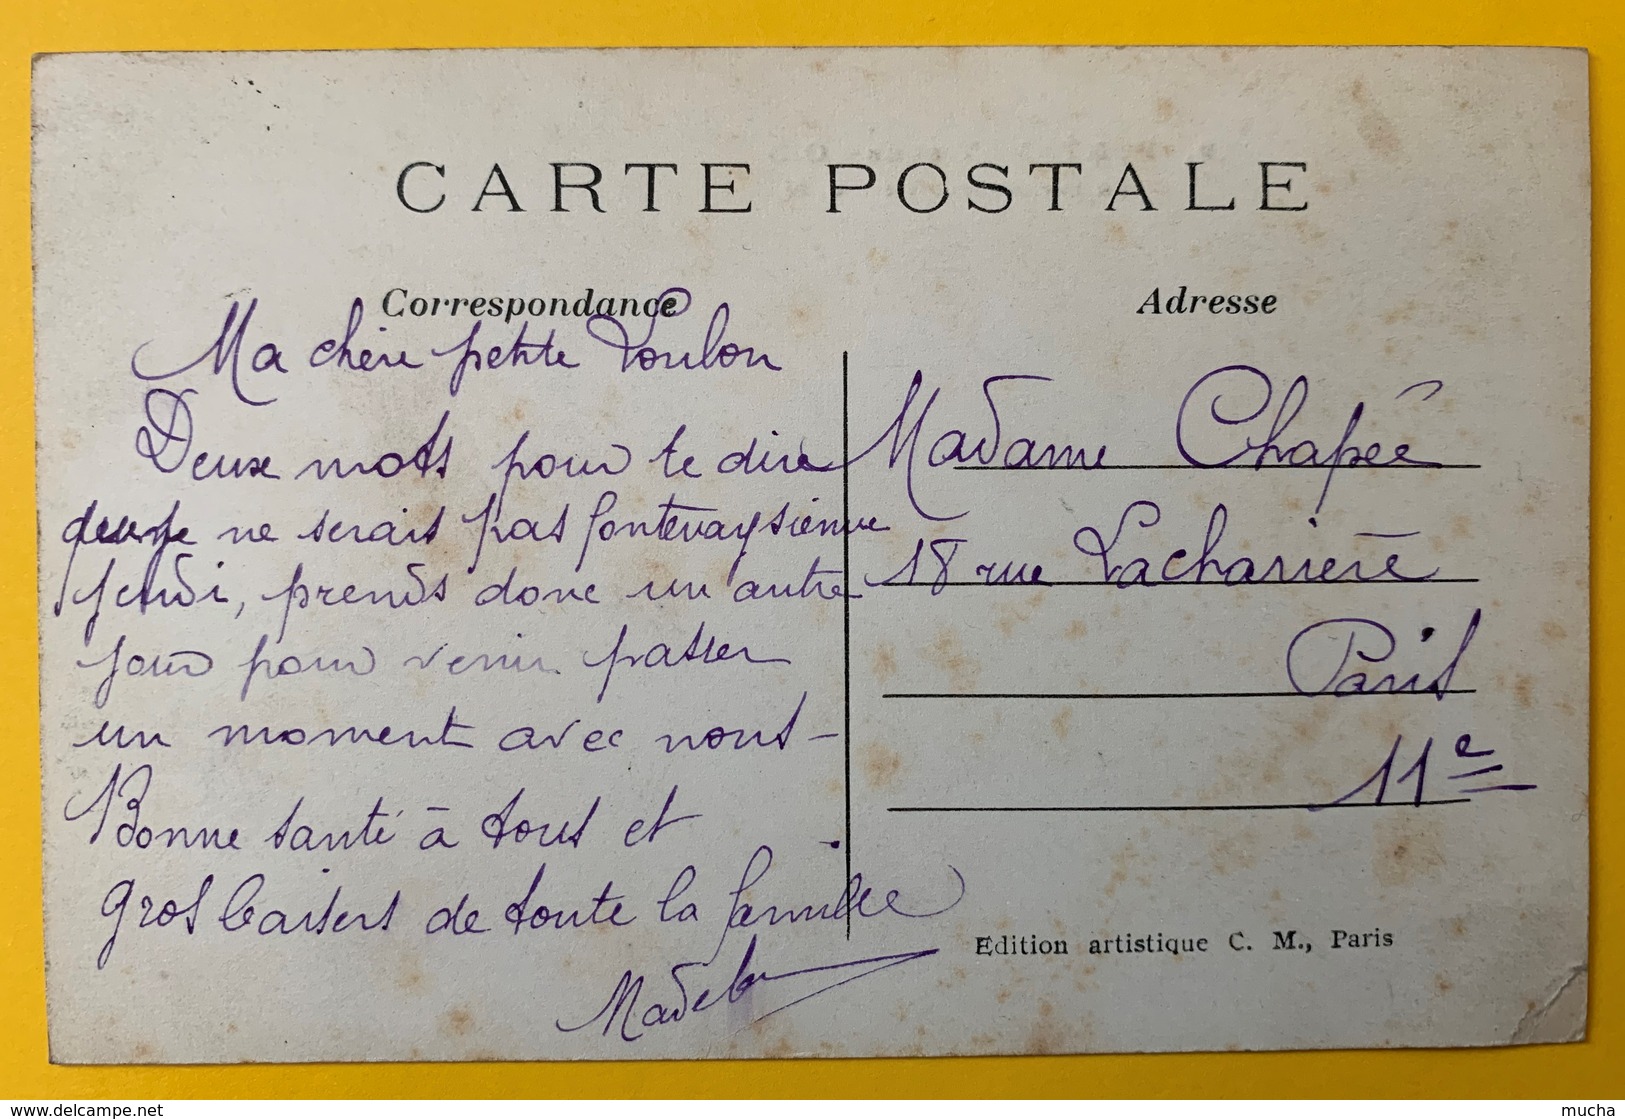 CARTE POSTALE
Correspondance
Ma chère petite Loulou
Deux mots pour te dire
ne serais pas fontenaysienne
jeudi, prends donc un autre
jour pour venir passer
un moment avec nous -
Bonne santé à tous et
gros baisers de toute la famille
Madelon
Adresse
Madame Chapée
18 rue Lacharrière
Paris
11e
Edition artistique C. M., Paris
www.delcampe.net
mucha